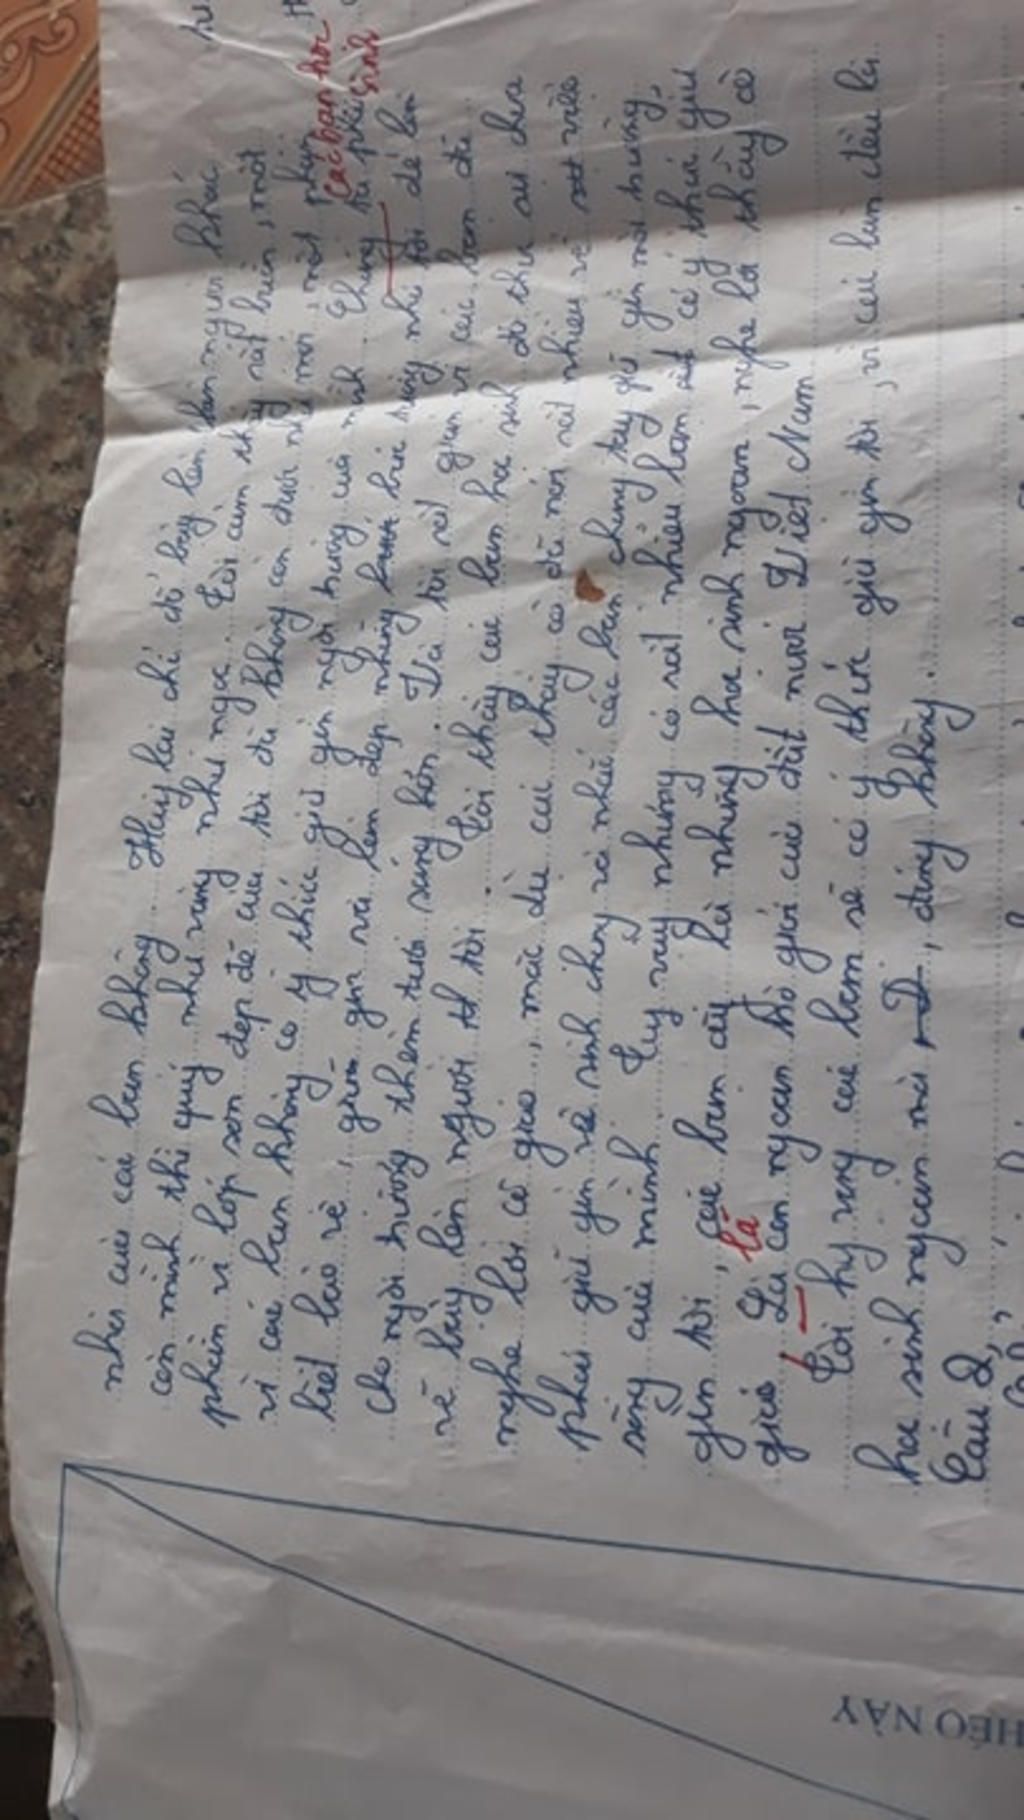 nhà của các bạn không. Hay lại chỉ đổ bậy lên sân người khác
còn mình thì quý như vàng như ngọc. Tôi cảm thấy rất buồn, một
phần vì lớp sơn đẹp đẽ của tôi đã không còn được như mới, một phần
vì các bạn không có ý thức giữ gìn ngôi trường của mình. Chúng ta phải
các bạn học sinh
biết bảo vệ, giữ gìn và làm đẹp những bức tường như tôi để làm
cho ngôi trường thêm tươi sáng hơn. Và tôi rất giận vì các bạn đã
vẽ bậy lên người tôi. Tôi thấy các bạn học sinh đó thật sự chưa
nghe lời cô giáo, mặc dù các thầy cô đã nói rất nhiều về việc
phải giữ gìn vệ sinh chung và nhắc các bạn chung tay giữ gìn môi trường
sống của mình. Tuy vậy nhưng có rất nhiều bạn có ý thức giữ
gìn tôi, các bạn ấy là những học sinh ngoan, nghe lời thầy cô
giáo, Là con ngoan trò giỏi của đất nước Việt Nam.
là
Tôi hy vọng các bạn sẽ có ý thức giữ gìn tôi, vì các bạn đều là
học sinh ngoan mà, đúng không.
Câu 2,
HÉO NÀY